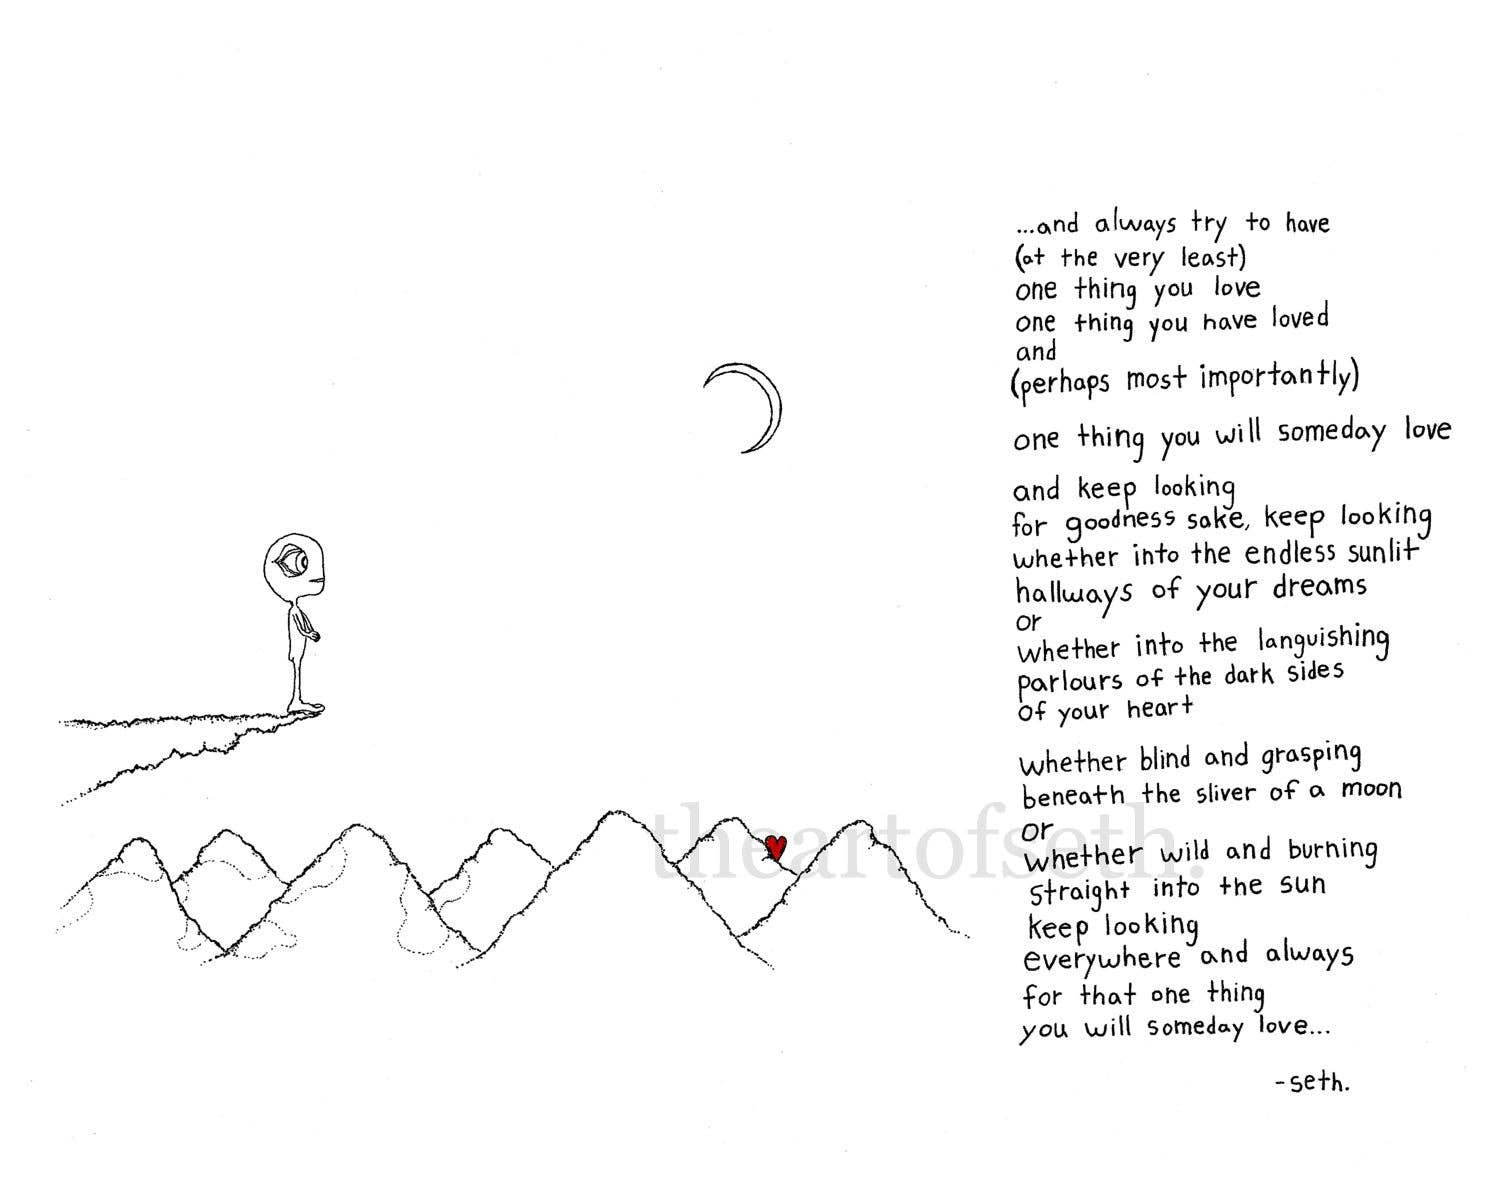 ...and always try to have
(at the very least)
one thing you love
one thing you have loved
and
(perhaps most importantly)
one thing you will someday love
and keep looking
for goodness sake, keep looking
whether into the endless sunlit
hallways of your dreams
or
whether into the languishing
parlours of the dark sides
of your heart
whether blind and grasping
beneath the sliver of a moon
or
whether wild and burning
straight into the sun
keep looking
everywhere and always
for that one thing
you will someday love...
-seth.
theartofseth.